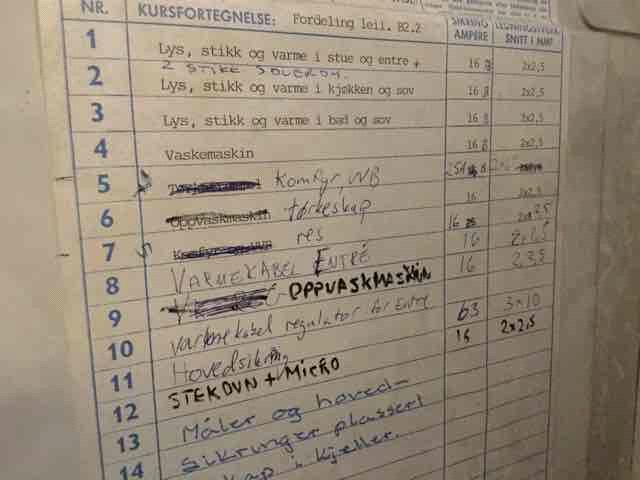 NR.
KURSFORTEGNELSE: Fordeling leil. B2.2
SIKRING
AMPERE
SNITT I MM²
1 Lys, stikk og varme i stue og entre +
16 2x2,5
2 STIKK SOVEROM.
2 Lys, stikk og varme i kjøkken og sov
16 2x2,5
3 Lys, stikk og varme i bad og sov
16 2x2,5
4 Vaskemaskin
16 2x2,5
5 Komfyr, WB
25A
6 Oppvaskmaskin tørkeskap
16 2x2,5
7 res
16
8 VARMEKABEL ENTRÉ
16
9 OPPVASKMASKIN
16
10 varmekabel regulator for Entre
11 Hovedsikring
63 3x10
12 STEKOVN + MICRO
16 2x2,5
13 Måler og hoved-
14 sikringer plassert
skap i kjeller.